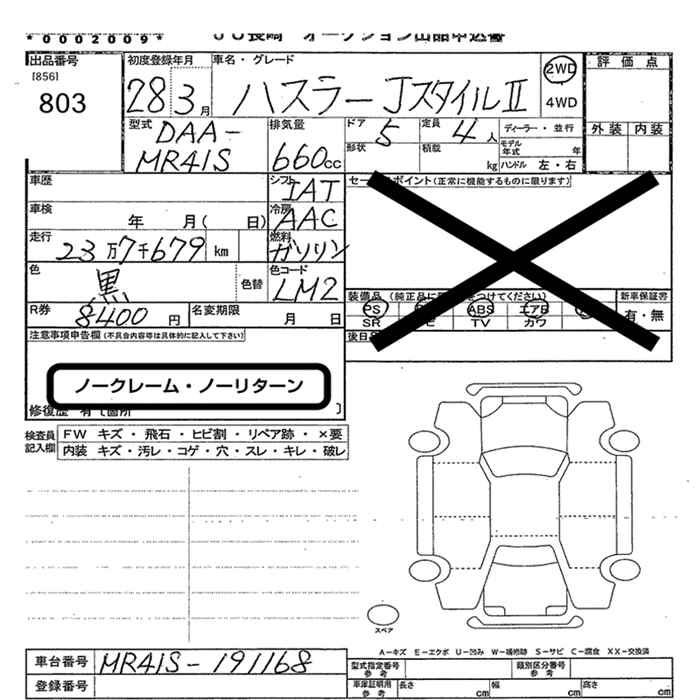 *0002009*
JU長崎 オークション出品申込書
出品番号 [856] 803
初度登録年月 28 3月
車名・グレード ハスラー JスタイルⅡ
2WD 4WD
評価点
外装 内装
型式 DAA-MR41S
排気量 660cc
ドア 5 形状
定員 4人 積載 kg
ディーラー・並行
モデル年式 年
ハンドル 左・右
車歴
シフト IAT
セールスポイント(正常に機能するものに限ります)
車検 年 月( 日)
冷房 AAC
走行 23万7千679 km
燃料 ガソリン
色 黒 色替
色コード LM2
装備品 (純正品に をつけてください)
新車保証書 有・無
PS ABS エアB
SR TV カワ
R券 8400円
名変期限 月 日
後日
注意事項申告欄(不具合内容等は具体的に記入して下さい)
ノークレーム・ノーリターン
修復歴 有 箇所
検査員記入欄
FW キズ・飛石・ヒビ割・リペア跡・×要
内装 キズ・汚レ・コゲ・穴・スレ・キレ・破レ
スペア
A-キズ E-エクボ U-凹み W-補修跡 S-サビ C-腐食 XX-交換済
車台番号 MR41S-191168
登録番号
型式指定番号 参考
類別区分番号 参考
車庫証明用 参考 長さ cm 幅 cm 高さ cm